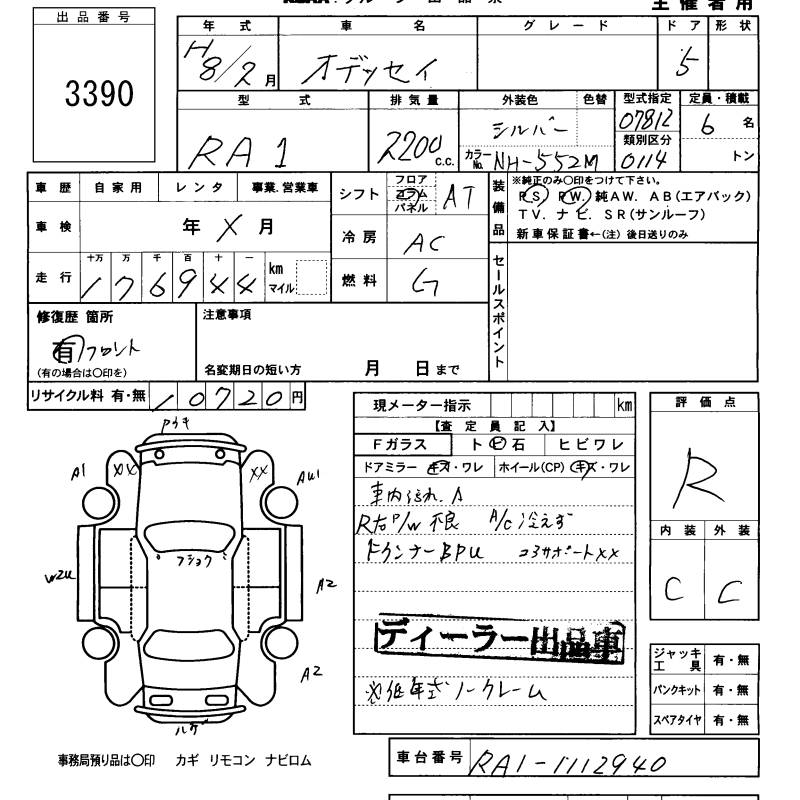 主催者用
出品番号
3390
年式 車名 グレード ドア 形状
H8/2月 オデッセイ 5
型式 排気量 外装色 色替 型式指定 定員・積載
07812
類別区分
RA1 2200c.c. シルバー カラーNo. NH-552M 0114 6名
トン
車歴 自家用 レンタ 事業.営業車
車検 年 X 月
走行 十万 万 千 百 十 一
176944 km マイル
シフト フロア コラム パネル AT
冷房 AC
燃料 G
装備品
※純正のみ〇印をつけて下さい。
PS. PW. 純AW. AB(エアバック)
TV. ナビ. SR(サンルーフ)
新車保証書←(注) 後日送りのみ
セールスポイント
修復歴 箇所
有 フロント
(有の場合は〇印を)
注意事項
名変期日の短い方 月 日まで
リサイクル料 有・無 10720円
現メーター指示 km
【査定員記入】
Fガラス トビ石 ヒビワレ
ドアミラー キズ・ワレ ホイール(CP) キズ・ワレ
車内汚れ.
R右P/W不良 A/C冷えず
BPU コアサポートXX
ディーラー出品車
低年式ノークレーム
評価点
R
内装 外装
C C
ジャッキ工具 有・無
パンクキット 有・無
スペアタイヤ 有・無
A1 XX XX AW1
フショク
W2U A2
A2
ハゲ
事務局預り品は〇印 カギ リモコン ナビロム
車台番号 RA1-1112940